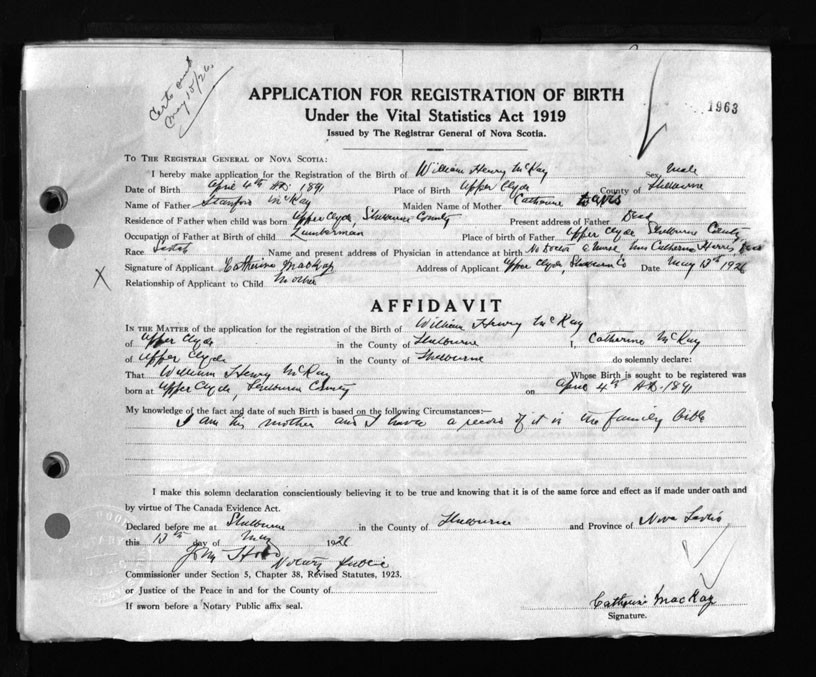 Certs sent
May 15/26.
APPLICATION FOR REGISTRATION OF BIRTH
1963
Under the Vital Statistics Act 1919
Issued by The Registrar General of Nova Scotia.
To The Registrar General of Nova Scotia:
I hereby make application for the Registration of Birth of William Henry McKay Sex Male
Date of Birth April 4th AD. 1891 Place of Birth Upper Clyde County of Shelburne
Name of Father Stanford McKay Maiden Name of Mother Catherine Davis
Residence of Father when child was born Upper Clyde, Shelburne County Present address of Father Dead
Occupation of Father at Birth of child Lumberman Place of birth of Father Upper Clyde Shelburne County
Race Scotch Name and present address of Physician in attendance at birth No Doctor a Nurse Mrs Catherine Harris, Dead
X Signature of Applicant Catherine MacKay Address of Applicant Upper Clyde, Shelburn Co Date May 13th 1926
Relationship of Applicant to Child Mother
AFFIDAVIT
In the Matter of the application for the registration of the Birth of William Henry McKay
of Upper Clyde in the County of Shelburne I, Catherine McKay
of Upper Clyde in the County of Shelburne do solemnly declare:
That William Henry McKay Whose Birth is sought to be registered was
born at Upper Clyde, Shelburne County on April 4th AD. 1891
My knowledge of the fact and date of such Birth is based on the following Circumstances:—
I am his mother and I have a record of it in the family bible
I make this solemn declaration conscientiously believing it to be true and knowing that it is of the same force and effect as if made under oath and
by virtue of The Canada Evidence Act.
Declared before me at Shelburne in the County of Shelburne and Province of Nova Scotia
this 13th day of May 1926
John Hood
Notary Public
Commissioner under Section 5, Chapter 38, Revised Statutes, 1923.
or Justice of the Peace in and for the County of
If sworn before a Notary Public affix seal.
Catherine MacKay
Signature.